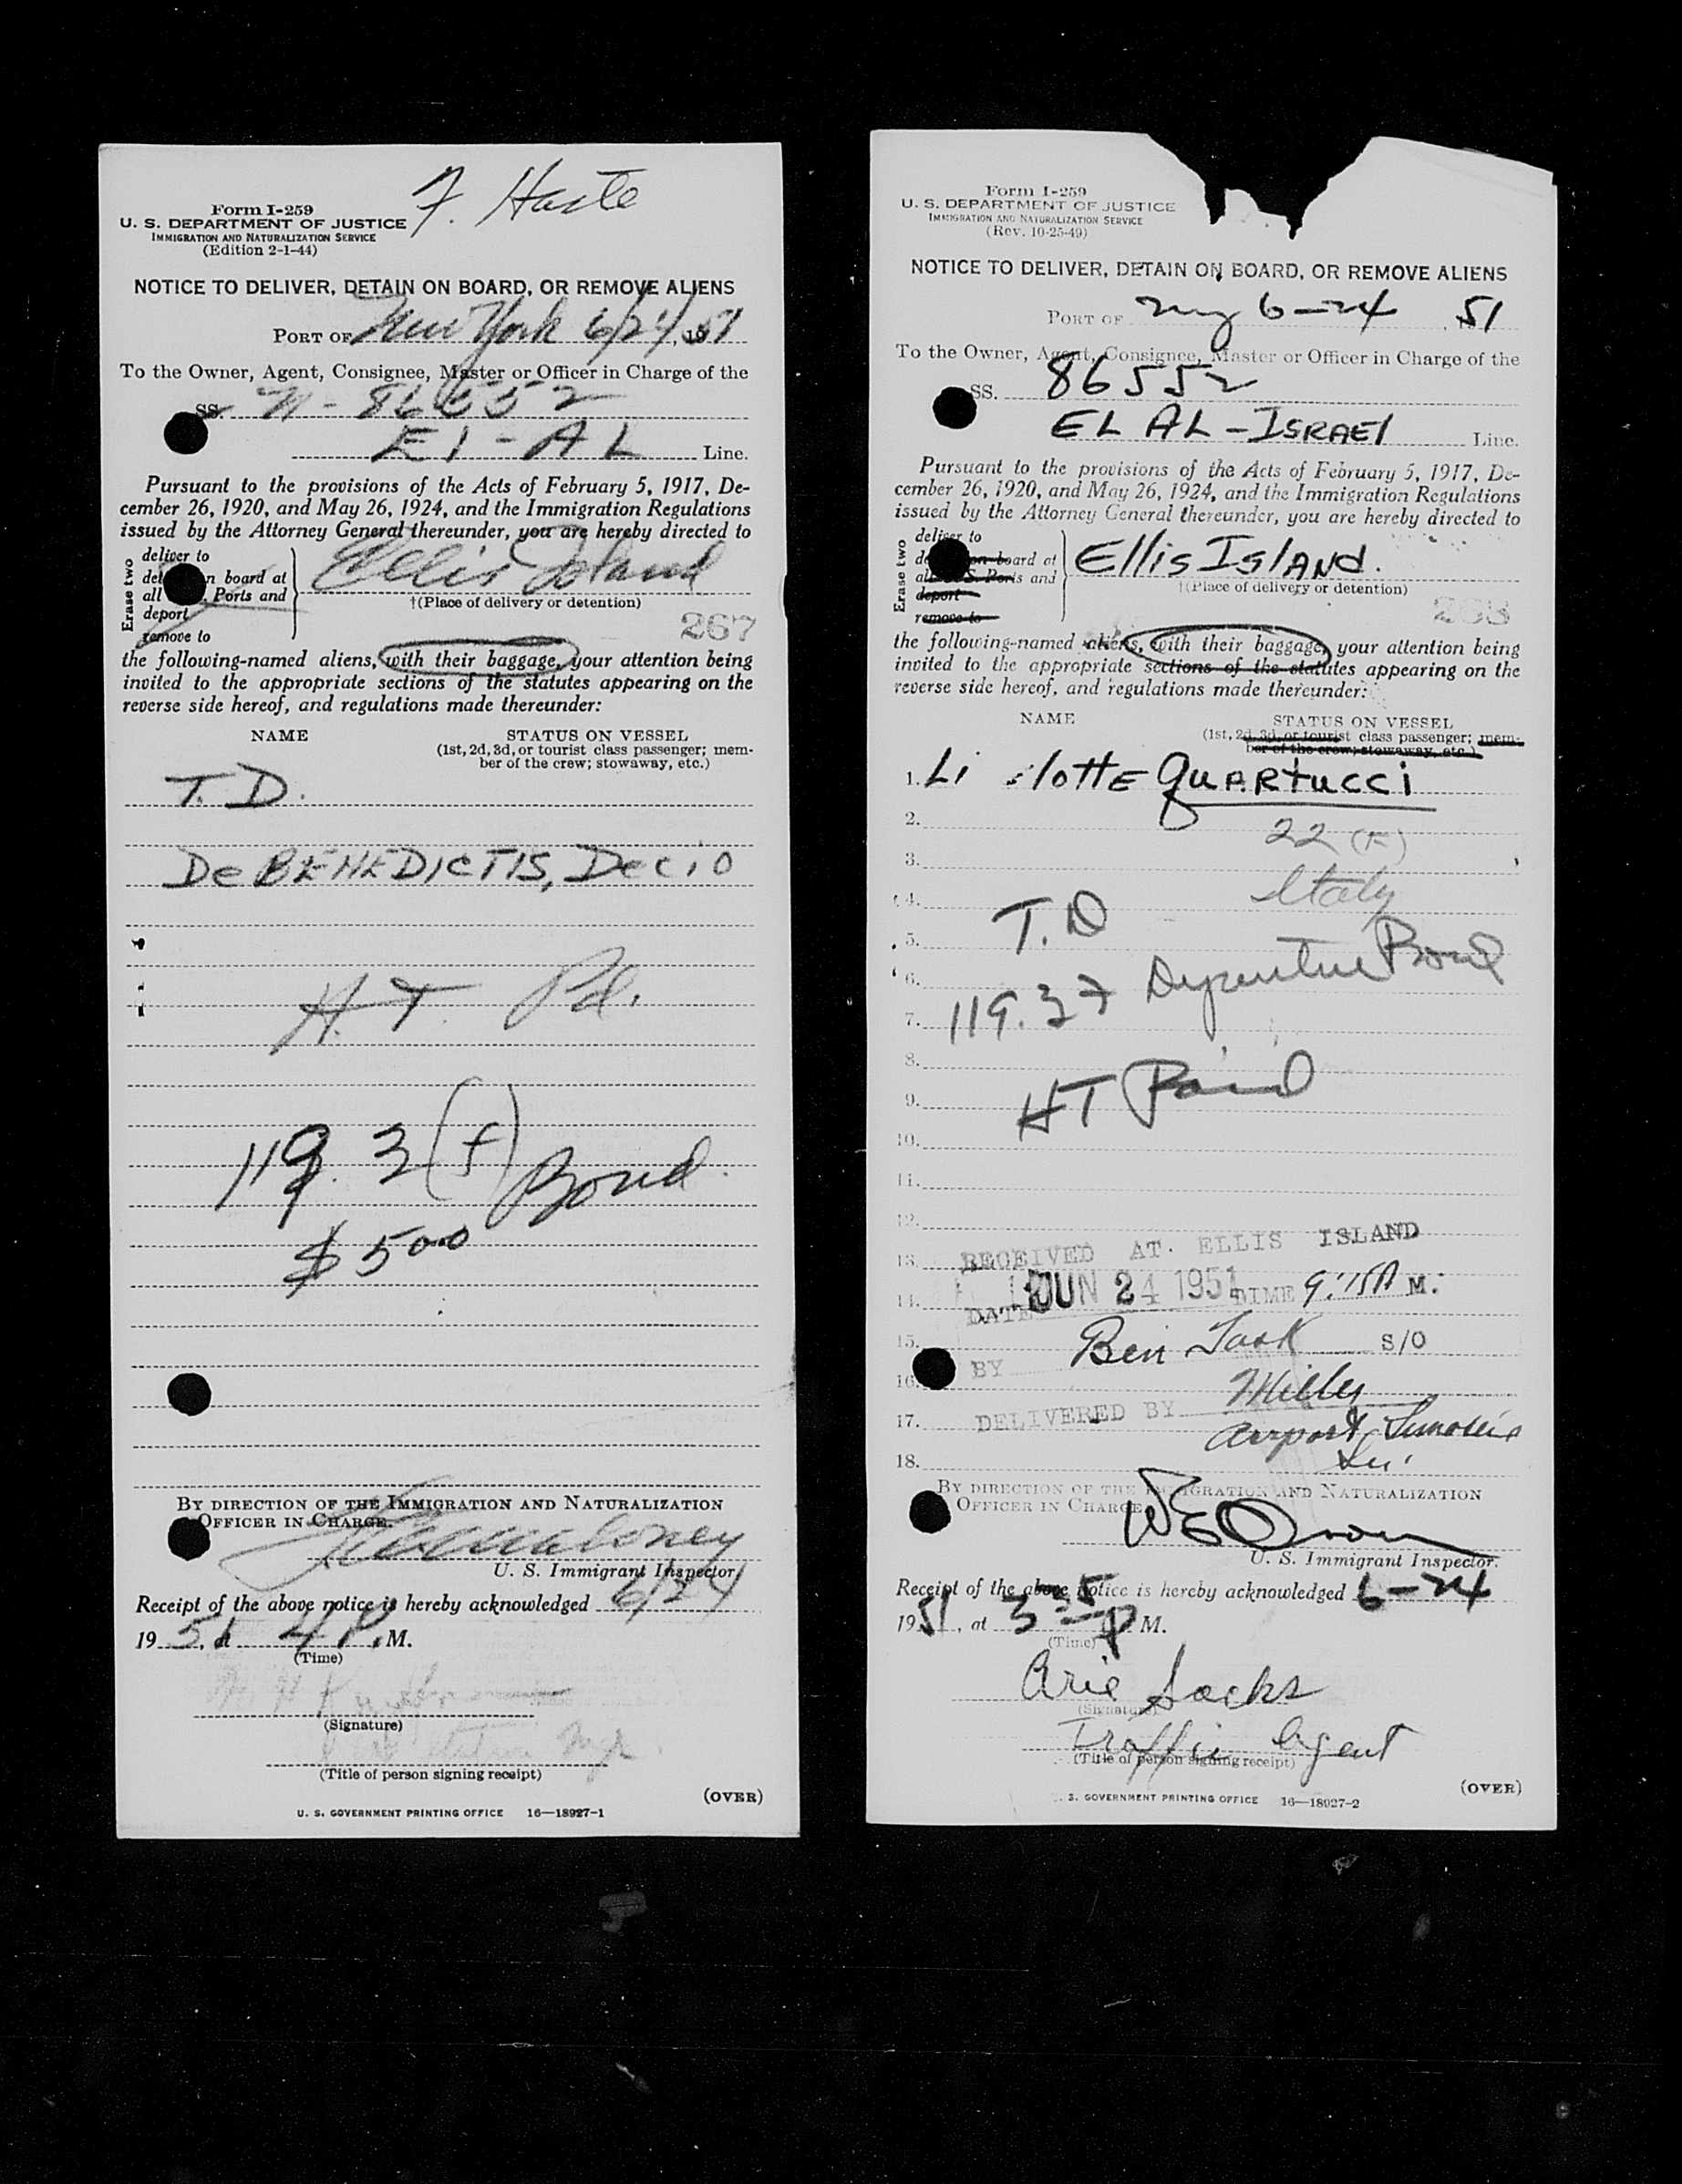 F. Haste
Form I-259
U. S. DEPARTMENT OF JUSTICE
IMMIGRATION AND NATURALIZATION SERVICE
(Edition 2-1-44)
NOTICE TO DELIVER, DETAIN ON BOARD, OR REMOVE ALIENS
PORT OF New York 6/24, 1951
To the Owner, Agent, Consignee, Master or Officer in Charge of the
SS. N-86552
El-AL Line.
Pursuant to the provisions of the Acts of February 5, 1917, De-
cember 26, 1920, and May 26, 1924, and the Immigration Regulations
issued by the Attorney General thereunder, you are hereby directed to
Erase two
deliver to
n board at
all Ports and
deport
remove to
Ellis Island
†(Place of delivery or detention)
267
the following-named aliens, with their baggage, your attention being
invited to the appropriate sections of the statutes appearing on the
reverse side hereof, and regulations made thereunder:
NAME
STATUS ON VESSEL
(1st, 2d, 3d, or tourist class passenger; mem-
ber of the crew; stowaway, etc.)
T. D.
De BENEDICTIS, Decio
H. T. Pd.
119. 3 (f) Bond
$500
BY DIRECTION OF THE IMMIGRATION AND NATURALIZATION
OFFICER IN CHARGE.
U. S. Immigrant Inspector.
Receipt of the above notice is hereby acknowledged 6/24
1951, at 4 P. M.
(Time)
(Signature)
Mgr.
(Title of person signing receipt)
(OVER)
U. S. GOVERNMENT PRINTING OFFICE 16—18927-1
Form I-259
U. S. DEPARTMENT OF JUSTICE
IMMIGRATION AND NATURALIZATION SERVICE
(Rev. 10-25-49)
NOTICE TO DELIVER, DETAIN ON BOARD, OR REMOVE ALIENS
PORT OF NY 6-24, 51
To the Owner, Agent, Consignee, Master or Officer in Charge of the
SS. 86552
EL AL-ISRAEl Line.
Pursuant to the provisions of the Acts of February 5, 1917, De-
cember 26, 1920, and May 26, 1924, and the Immigration Regulations
issued by the Attorney General thereunder, you are hereby directed to
Erase two
deliver to
on board at
all S. Ports and
deport
remove to
Ellis IslAnd.
†(Place of delivery or detention)
268
the following-named aliens, with their baggage, your attention being
invited to the appropriate sections of the statutes appearing on the
reverse side hereof, and regulations made thereunder:
NAME
STATUS ON VESSEL
(1st, 2d, 3d, or tourist class passenger; mem-
ber of the crew; stowaway, etc.)
1. Li lottE QuARtucci
2.
22 (F)
3.
Italy
4.
T. D
5.
6.
119.37 Departure Bond
7.
8.
HT Paid
9.
10.
11.
12.
13. RECEIVED AT. ELLIS ISLAND
14. DATE JUN 24 1951 TIME 9:15A M.
15. BY Ben S/O
16.
17. DELIVERED BY Miller
Airport
18.
BY DIRECTION OF THE IMMIGRATION AND NATURALIZATION
OFFICER IN CHARGE
U. S. Immigrant Inspector.
Receipt of the above notice is hereby acknowledged 6-24
1951, at 3 25 P M.
(Time)
Arie Sacks
(Signature)
Traffic Agent
(Title of person signing receipt)
(OVER)
S. GOVERNMENT PRINTING OFFICE 16—18927-2